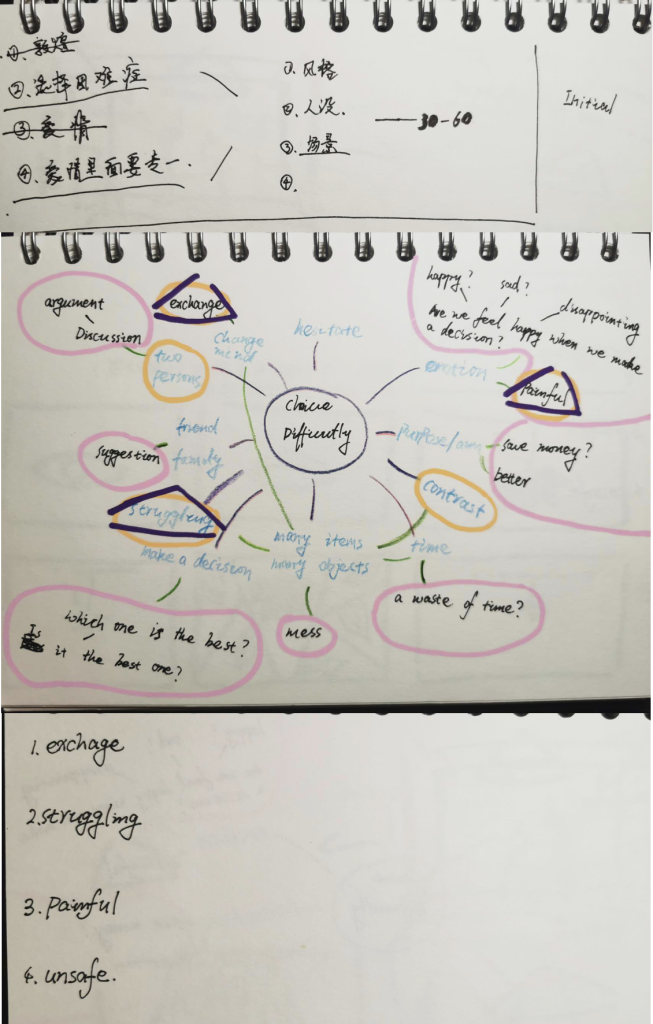 ①、敦煌
②、选择困难症
③、爱情
④、爱情里面要专一.
①、风格
②、人设.
③、场景
④.
30-60
Initial
argument
Discussion
exchange
change
mend
hesitate
two
persons
happy?
sad?
disappointing
Are we feel happy when we make
a decision?
emotion
Painful
choice
Difficultly
friend
family
suggestion
purpose/aim
save money?
better
contrast
struggling
make a decision
many items
many objects
time
a waste of time?
mess
which one is the best?
Is it the best one?
1. exchage
2. struggling
3. Painful
4. unsafe.